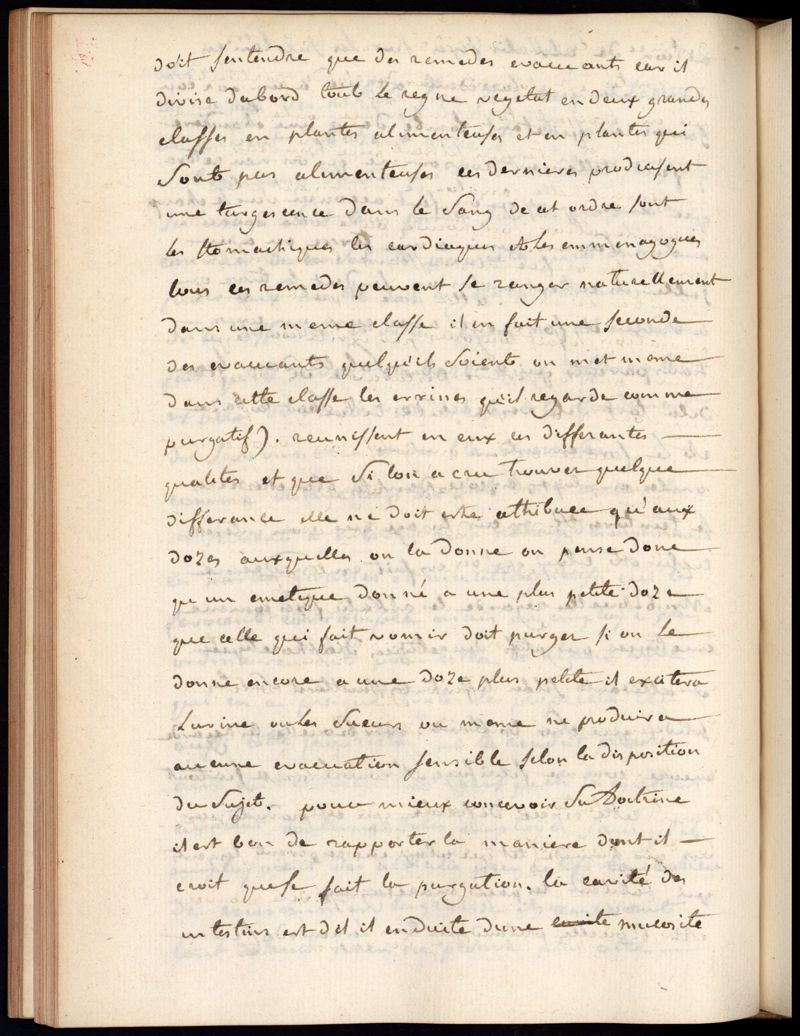 doit sentendre que des remedes evacuants car il
divise dabord tout le regne vegetal en deux grandes
classes en plantes alimenteuses et en plantes qui
sont pas alimenteuses ces dernieres produisent
une turgescence dans le sang de cet ordre sont
les stomachiques les cardiaques et les emmenagogues
tous ces remedes peuvent se ranger naturellement
dans une meme classe il en fait une seconde
des evacuants quelqu'ils soient on met meme
dans cette classe les errines qu'il regarde comme
purgatif). reunissent en eux ces differantes
qualités et que si lon a cru trouver quelque
differance elle ne doit etre attribuee qu'aux
dozes auxquelles on la donne on pense donc
qu'un emetique donné a une plus petite doze
que celle qui fait vomir doit purger si on le
donne encore a une doze plus petite il excitera
lurine ou les sueurs ou meme ne produira
aucune evacuation sensible selon la disposition
du sujet. pour mieux concevoir sa doctrine
il est bon de rapporter la maniere dont il
croit que se fait la purgation. la cavité des
intestins est dit il enduite dune mucosite